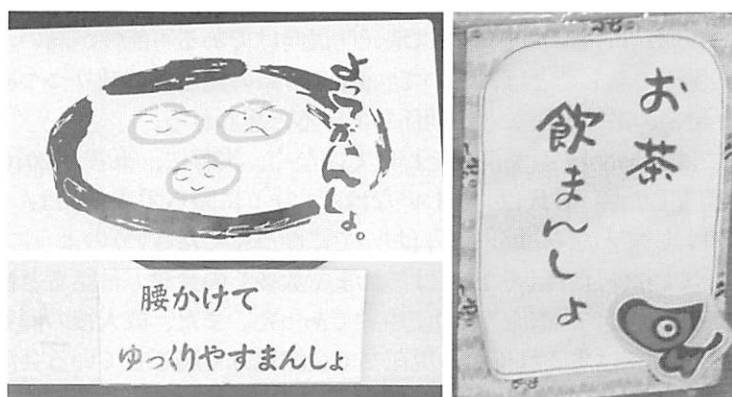 よってがんしょ。
腰かけて
ゆっくりやすまんしょ
お茶
飲まんしょ